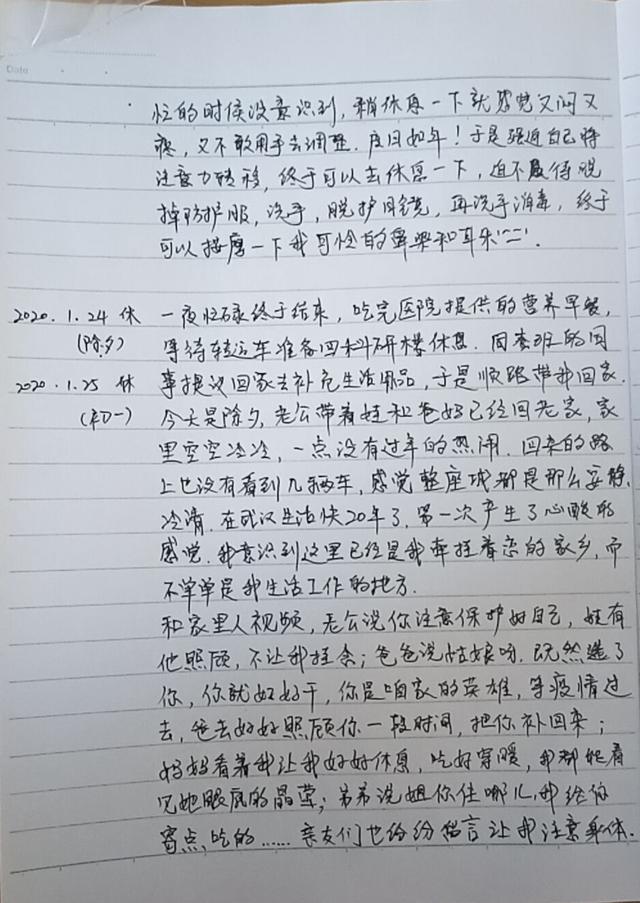 Date
忙的时候没意识到,稍休息一下就感觉又闷又
疼,又不敢用手去调整.度日如年!于是强迫自己将
注意力转移,终于可以去休息一下,迫不及待脱
掉防护服,洗手,脱护目镜,再洗手消毒,终于
可以按摩一下我可怜的鼻梁和耳朵
2020.1.24 休 一夜忙碌终于结束,吃完医院提供的营养早餐,
(除夕) 等待转运车准备回科研楼休息.同夜班的同
2020.1.25 休 事提议回家去补充生活用品,于是顺路带我回家.
(初一) 今天是除夕,老公带着娃和爸妈已经回老家,家
里空空冷冷,一点没有过年的热闹.回来的路
上也没有看到几辆车,感觉整座城都是那么安静,
冷清.在武汉生活快20年了,第一次产生了心酸的
感觉.我意识到这里已经是我牵挂着恋的家乡,而
不单单是我生活工作的地方.
和家里人视频,老公说你注意保护好自己,娃有
他照顾,不让我挂念;爸爸说姑娘呀.既然选了
你,你就好好干,你是咱家的英雄,等疫情过
去,爸去好好照顾你一段时间,把你补回来;
妈妈看着我让我好好休息,吃好穿暖,我都能看
见她眼底的晶莹;弟弟说姐你住哪儿,我给你
寄点吃的……亲友们也纷纷留言让我注意身体.